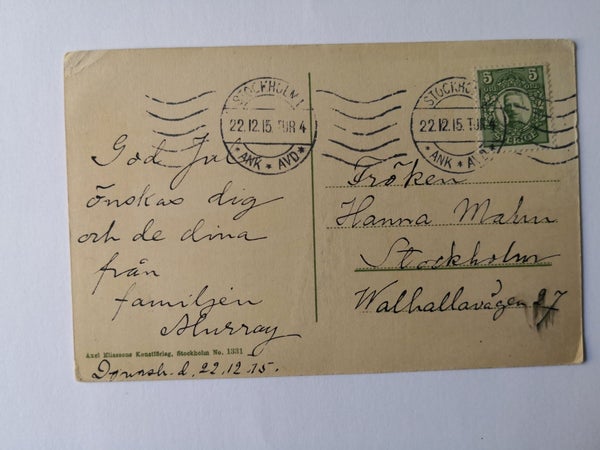 STOCKHOLM 1
22.12.15. TUR 4
* ANK * AVD *
STOCKHOLM
22.12.15. TUR 4
* ANK * AVD *
5 5
God Jul
önskas dig
och de dina
från
familjen
Murray
Fröken
Hanna Malm
Stockholm
Walhallavägen 27
Axel Eliassons Konstförlag, Stockholm No. 1331
d. 22.12.15.